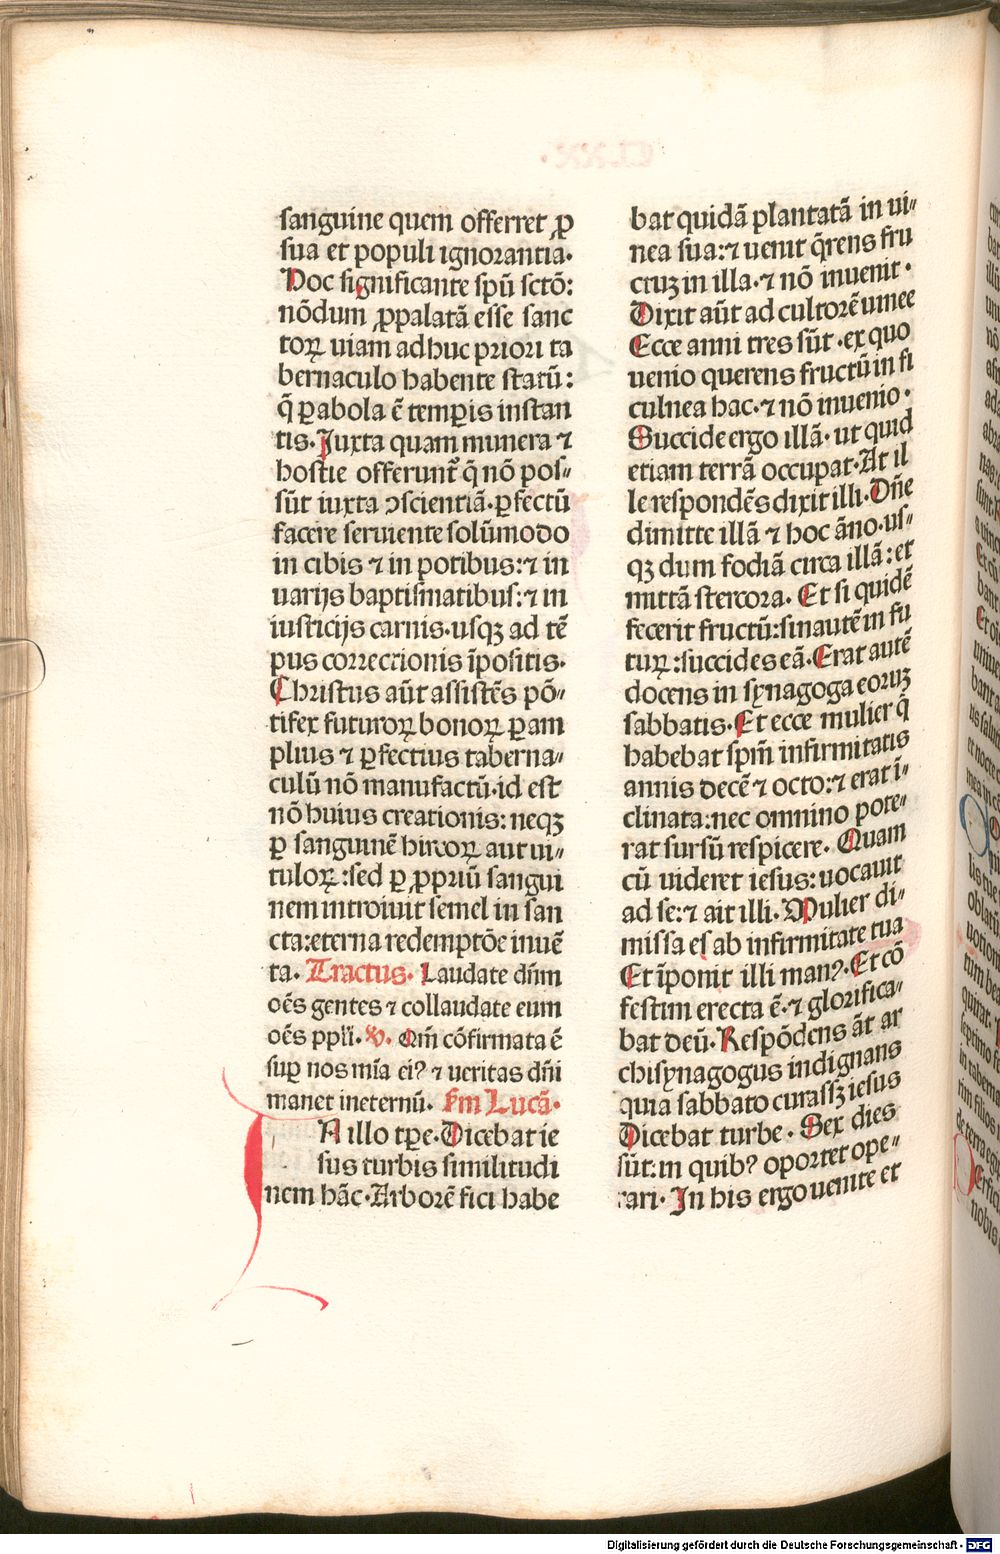 sanguine quem offerret ꝓ
sua et populi ignorantia.
Hoc significante spũ sctõ:
nõdum ꝓpalatã esse sanc
toꝝ uiam adhuc priori ta
bernaculo habente statũ:
q̃ ꝑabola ẽ temꝑis instan
tis. Juxta quam munera ⁊
hostie offerunt᷑ q̃ nõ pos⸗
sũt iuxta ↄscientiã. ꝑfectũ
facere seruiente solũmodo
in cibis ⁊ in potibus: ⁊ in
uarijs baptismatibus: ⁊ in
iusticijs carnis. usqꝫ ad tẽ
pus correctionis ĩpositis.
Christus aũt assistẽs põ⸗
tifex futuroꝝ bonoꝝ ꝑ am
plius ⁊ ꝑfectius taberna⸗
culũ nõ manufactũ. id est
nõ huius creationis: neqꝫ
ꝑ sanguinẽ hircoꝝ aut ui⸗
tuloꝝ: sed ꝑ ꝓpriũ sangui
nem introiuit semel in san
cta: eterna redemptõe inuẽ
ta. Tractus. Laudate dñm
oẽs gentes ⁊ collaudate eum
oẽs ppl'i. V. Qm̃ cõfirmata ẽ
suꝑ nos mĩa eiꝰ ⁊ ueritas dñi
manet ineternũ. Fm Lucã.
IN illo tꝑe. Dicebat ie
sus turbis similitudi
nem hãc. Arborẽ fici habe
bat quidã plantatã in ui⸗
nea sua: ⁊ uenit q̃rens fru
ctuꝫ in illa. ⁊ nõ inuenit.
Dixit aũt ad cultorẽ uinee
Ecce anni tres sũt. ex quo
uenio querens fructũ in fi
culnea hac. ⁊ nõ inuenio.
Succide ergo illã. ut quid
etiam terrã occupat. At il
le respondẽs dixit illi. Dñe
dimitte illã ⁊ hoc ãno. us⸗
qꝫ dum fodiã circa illã: et
mittã stercora. Et si quidẽ
fecerit fructũ: sin autẽ in fu
tuꝝ: succides eã. Erat autẽ
docens in synagoga eoruꝫ
sabbatis. Et ecce mulier q̃
habebat spm̃ infirmitatis
annis decẽ ⁊ octo: ⁊ erat ĩ⸗
clinata: nec omnino pote⸗
rat sursũ respicere. Quam
cũ uideret iesus: uocauit
ad se: ⁊ ait illi. Mulier di⸗
missa es ab infirmitate tua
Et ĩponit illi manꝰ. Et cõ
festim erecta ẽ. ⁊ glorifica⸗
bat deũ. Respõdens ãt ar
chisynagogus indignans
quia sabbato curassꝫ iesus
Dicebat turbe. Sex dies
sũt: in quibꝰ oportet ope⸗
rari. In his ergo uenite et
Digitalisierung gefördert durch die Deutsche Forschungsgemeinschaft - DFG